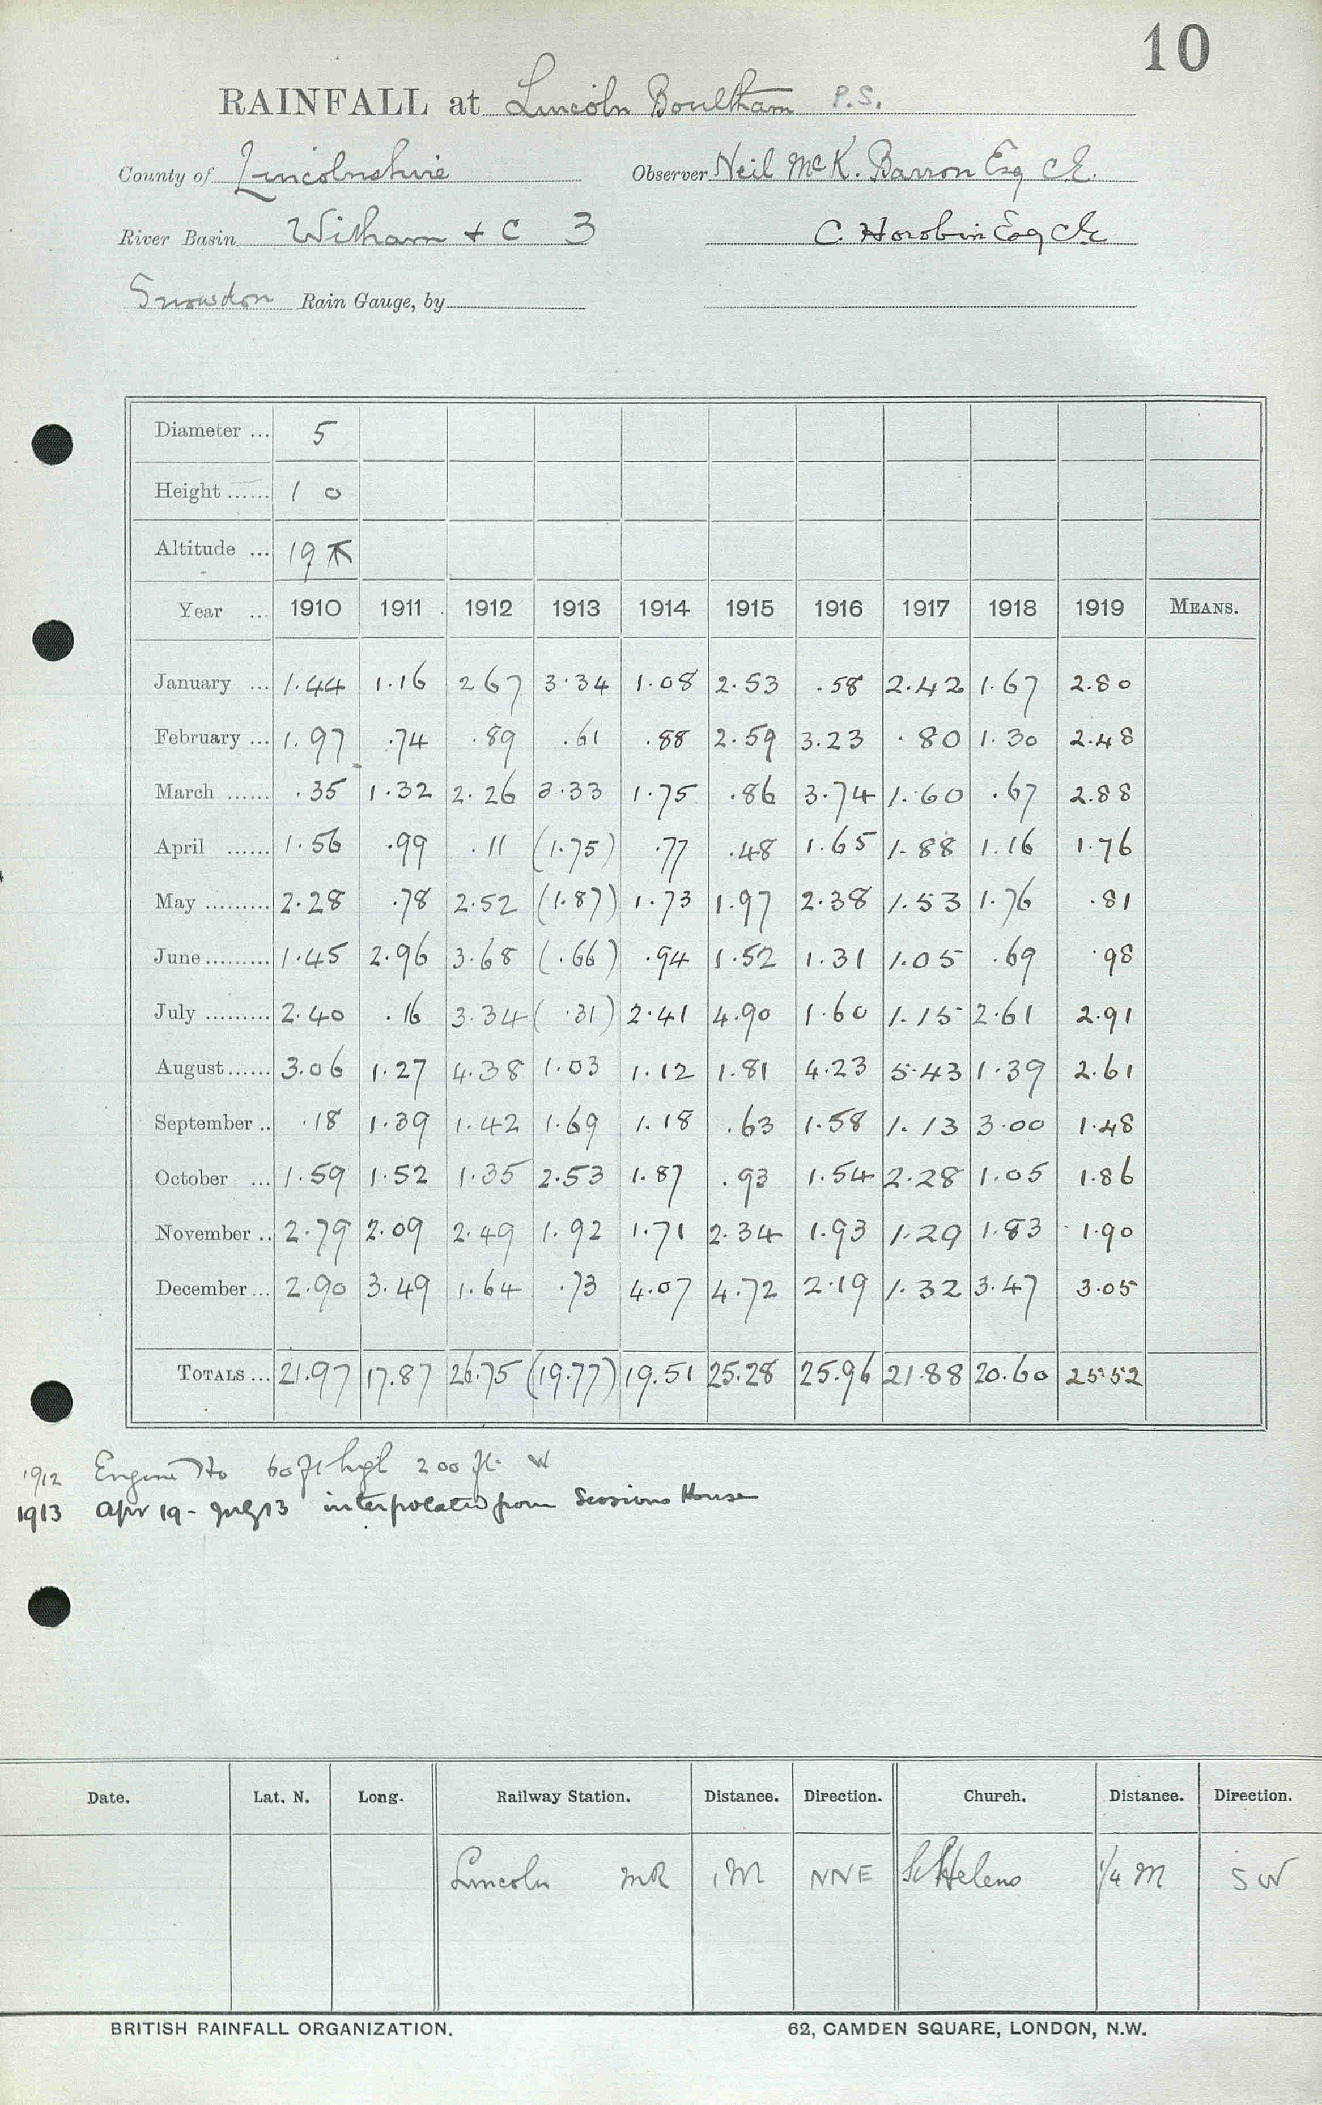 10
RAINFALL at Lincoln Boultham P.S.
County of Lincolnshire Observer Neil McK. Barron Esq CE.
River Basin Witham + C 3 C. Horobin Esq CE
Snowdon Rain Gauge, by
Diameter ... 5
Height ...... 1 0
Altitude ... 19
Year ... 1910 1911 1912 1913 1914 1915 1916 1917 1918 1919 MEANS.
January ... 1.44 1.16 2 67 3.34 1.08 2.53 .58 2.42 1.67 2.80
February ... 1.97 .74 .89 .61 .88 2.59 3.23 .80 1.30 2.48
March ...... .35 1.32 2.26 3.33 1.75 .86 3.74 1.60 .67 2.88
April ...... 1.56 .99 .11 (1.75) .77 .48 1.65 1.88 1.16 1.76
May ......... 2.28 .78 2.52 (1.87) 1.73 1.97 2.38 1.53 1.76 .81
June ......... 1.45 2.96 3.68 (.66) .94 1.52 1.31 1.05 .69 .98
July ......... 2.40 .16 3.34 (.31) 2.41 4.90 1.60 1.15 2.61 2.91
August ...... 3.06 1.27 4.38 1.03 1.12 1.81 4.23 5.43 1.39 2.61
September .. .18 1.39 1.42 1.69 1.18 .63 1.58 1.13 3.00 1.48
October ... 1.59 1.52 1.35 2.53 1.87 .93 1.54 2.28 1.05 1.86
November .. 2.79 2.09 2.49 1.92 1.71 2.34 1.93 1.29 1.83 1.90
December ... 2.90 3.49 1.64 .73 4.07 4.72 2.19 1.32 3.47 3.05
TOTALS ... 21.97 17.87 26.75 (19.77) 19.51 25.28 25.96 21.88 20.60 25.52
1912 Engine Ho 60 ft high 200 ft. W
1913 Apr 19 - July 13 interpolated from Sessions House
Date. Lat. N. Long. Railway Station. Distance. Direction. Church. Distance. Direction.
Lincoln MR 1 M NNE St Helens 1/4 M SW
BRITISH RAINFALL ORGANIZATION. 62, CAMDEN SQUARE, LONDON, N.W.